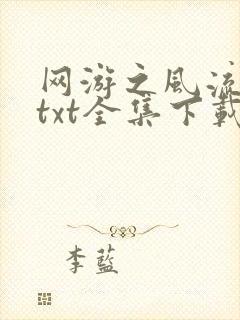 网游之风流
txt全集下载
李蓝